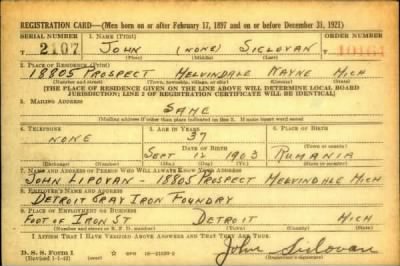 REGISTRATION CARD—(Men born on or after February 17, 1897 and on or before December 31, 1921)
SERIAL NUMBER 1. NAME (Print) ORDER NUMBER
T 2107 JOHN (NONE) SICLOVAN T 10164
(First) (Middle) (Last)
2. PLACE OF RESIDENCE (Print)
18805 PROSPECT MELVINDALE WAYNE MICH
(Number and street) (Town, township, village, or city) (County) (State)
[THE PLACE OF RESIDENCE GIVEN ON THE LINE ABOVE WILL DETERMINE LOCAL BOARD
JURISDICTION; LINE 2 OF REGISTRATION CERTIFICATE WILL BE IDENTICAL]
3. MAILING ADDRESS
SAME
[Mailing address if other than place indicated on line 2. If same insert word same]
4. TELEPHONE 5. AGE IN YEARS 6. PLACE OF BIRTH
NONE 37
DATE OF BIRTH
SEPT 12 1903 RUMANIA
(Exchange) (Number) (Mo.) (Day) (Yr.) (State or country)
7. NAME AND ADDRESS OF PERSON WHO WILL ALWAYS KNOW YOUR ADDRESS
JOHN LIPOVAN - 18805 PROSPECT MELVINDALE MICH
8. EMPLOYER'S NAME AND ADDRESS
DETROIT GRAY IRON FOUNDRY
9. PLACE OF EMPLOYMENT OR BUSINESS
FOOT OF IRON ST DETROIT MICH
(Number and street or R. F. D. number) (Town) (County) (State)
I AFFIRM THAT I HAVE VERIFIED ABOVE ANSWERS AND THAT THEY ARE TRUE.
D. S. S. Form 1
(Revised 1-1-42) (over) John Siclovan